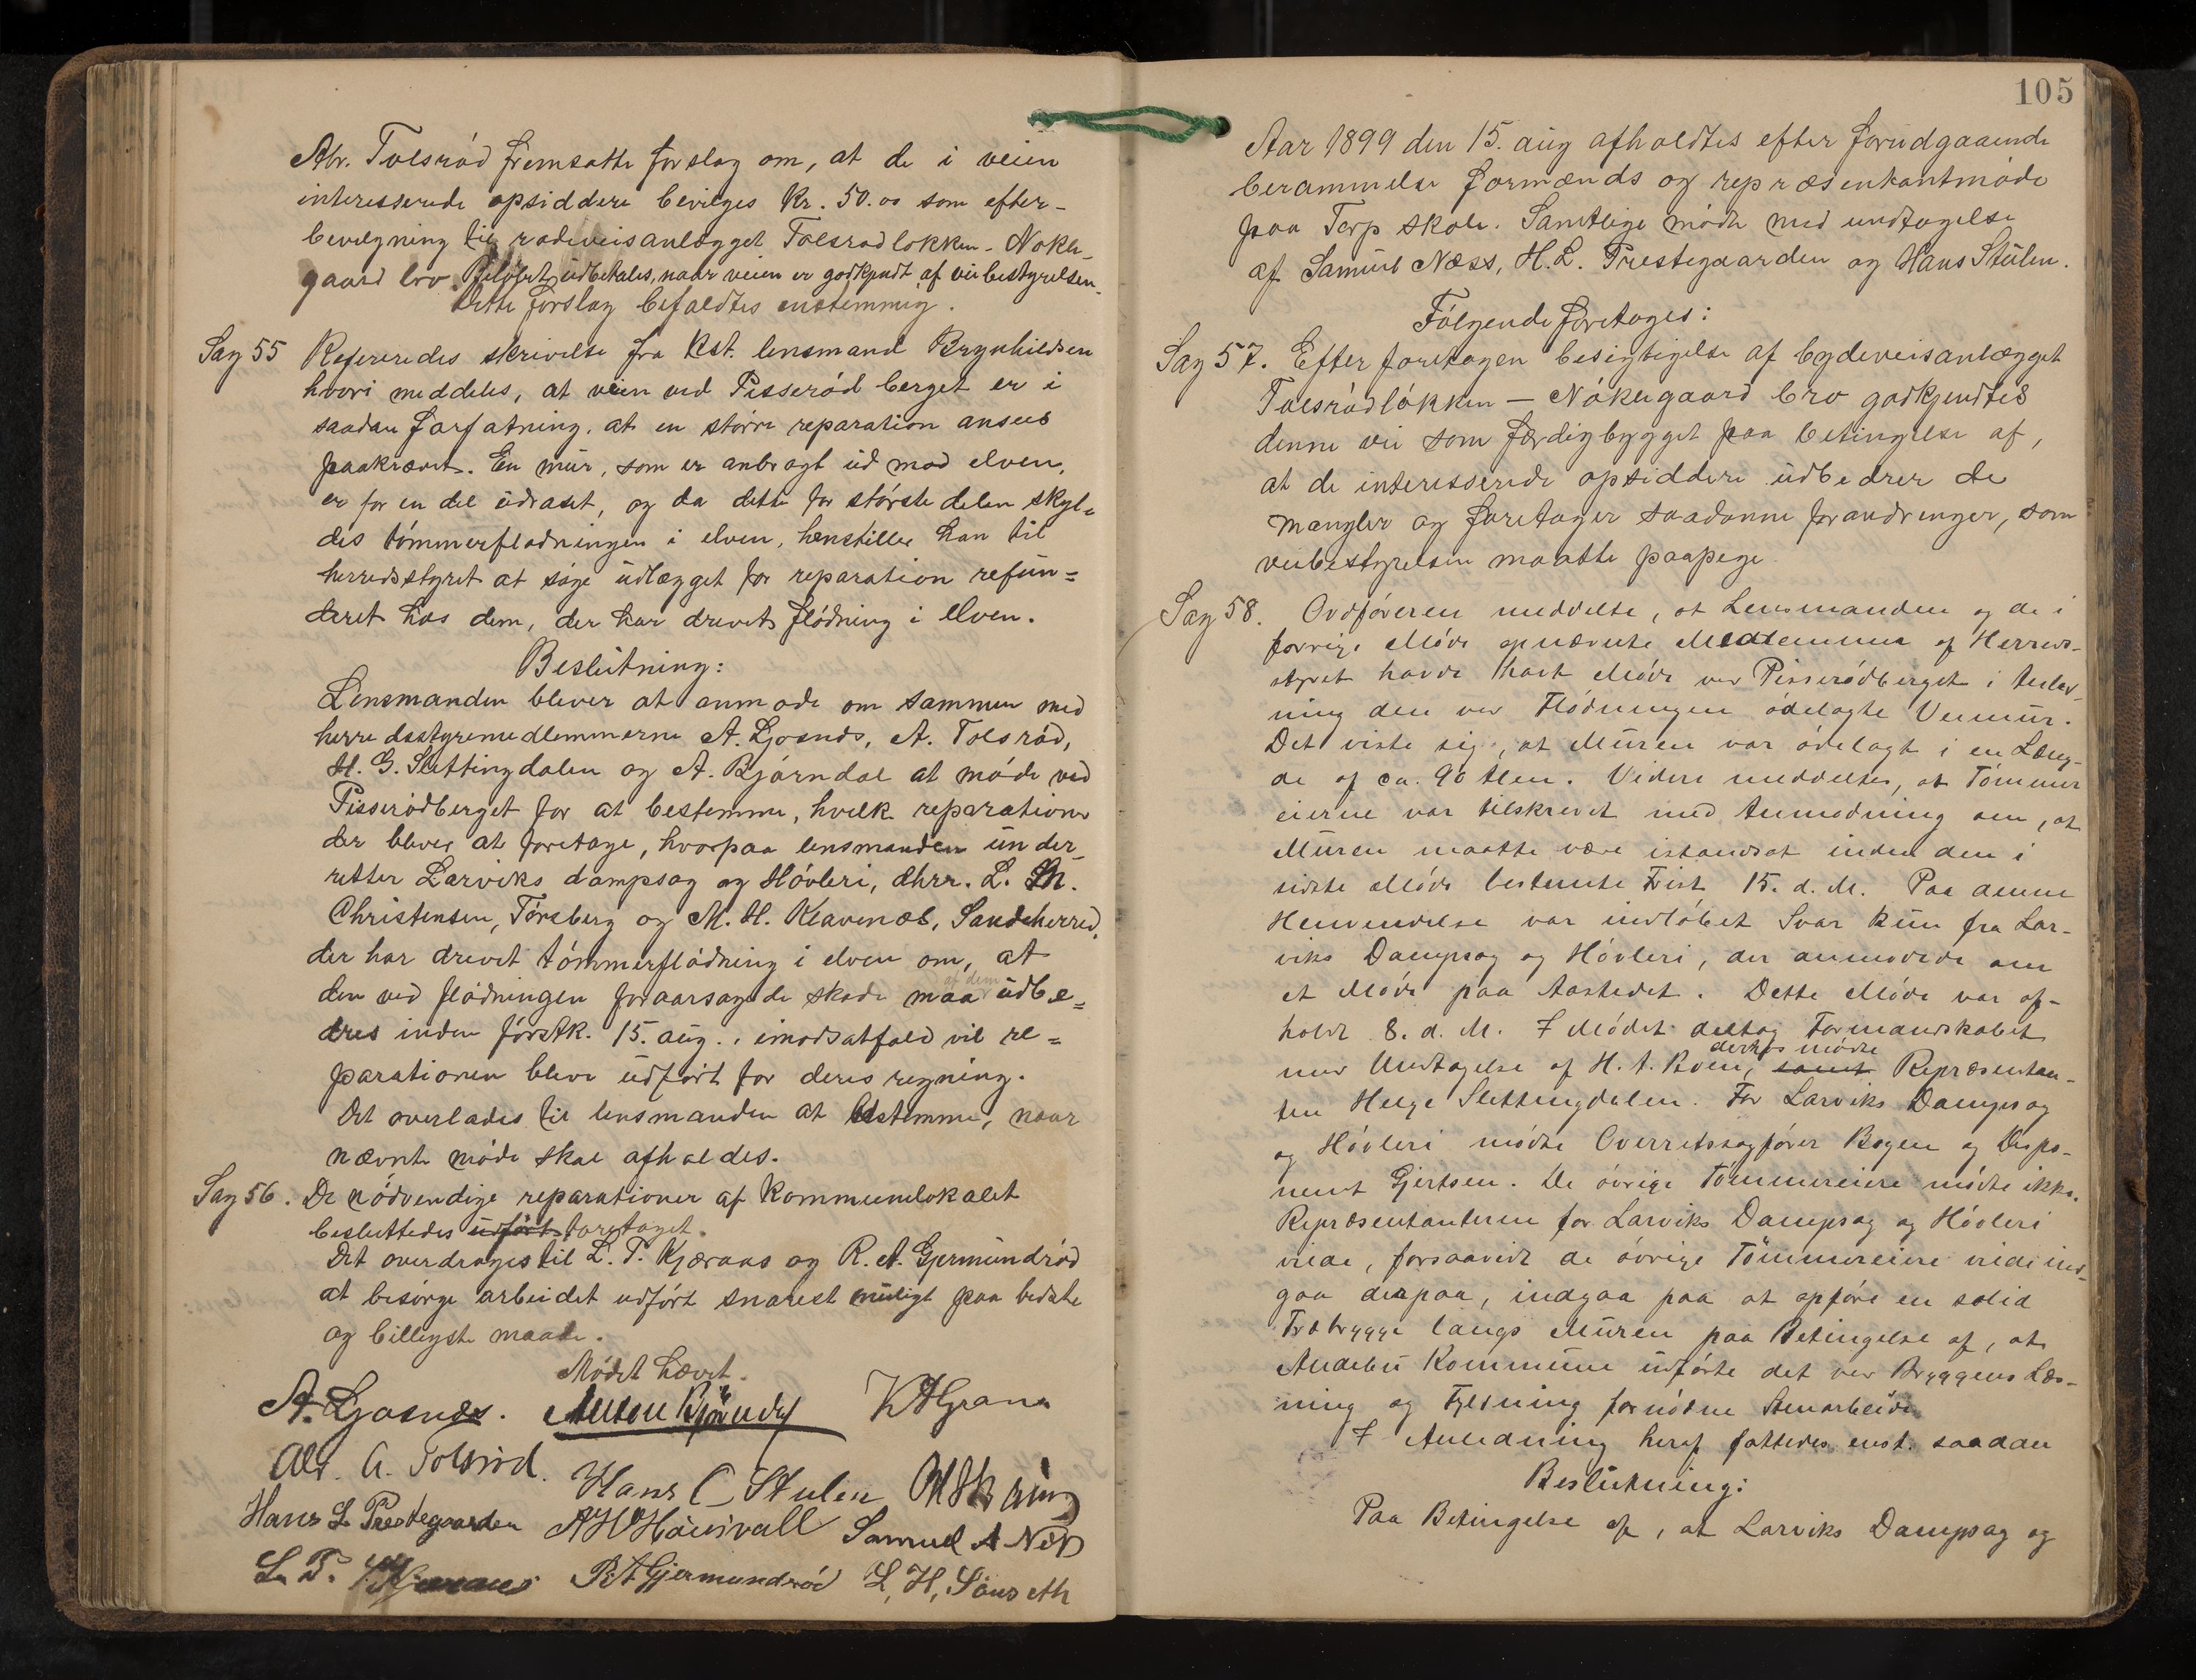 Abr. Tolsrød fremsatte forslag om, at de i veien
interesserede opsiddere bevilges kr. 50.00 som efter-
bevilgning til rodeveisanlægget Tolsrødløkken - Nøkle-
gaard bro. Beløbet udbetales, naar veien er godkjendt af veibestyrelsen.
Dette forslag befaldtes enstemmig.
Sag 55 Refereredes skrivelse fra kst. lensmand Brynhildsen
hvori meddeles, at veien ved Pisserød berget er i
saadan forfatning, at en større reparation ansees
paakrævet. En mur, som er anbragt ud mod elven,
er for en del udraset, og da dette for største delen skyl-
des tømmerflødningen i elven, henstiller han til
herredsstyret at søge udlægget for reparation refun=
deret hos dem, der har drevet flødning i elven.
Beslutning:
Lensmanden bliver at anmode om sammen med
herredsstyremedlemmerne A. Gjosnes, A. Tolsrød,
H. G. Slettingdalen og A. Bjørndal at møde ved
Pisserødberget for at bestemme, hvilk reparationer
der bliver at foretage, hvorpaa lensmanden under-
retter Larviks dampsag og Høvleri, dhrr. L. M.
Christensen, Tønsberg og M. H. Klavenæs, Sandeherred,
der har drevet tømmerflødning i elven om, at
den ved flødningen foraarsagede skade maa af dem udbe=
dres inden førstk. 15. aug., imodsatfald vil re=
parationen blive udført for deres regning.
Det overlades til lensmanden at bestemme, naar
nævnte møde skal afholdes.
Sag 56. De nødvendige reparationer af kommunelokalet
besluttedes udført foretaget.
Det overdrages til L. T. Kjæraas og R. A. Gjermundrød
at besørge arbeidet udført snarest muligt paa bedste
og billigste maade.
Mødet hævet.
A. Gjosnæs. Anton Bjørndal K A Gran
Abr. A. Tolsrød.
Hans C Stulen
Hans L Prestegaarden A H Hasivall Samuel A Næss
L. T. Kjæraas R A Gjermundrød L. H. Sønseth
105
Aar 1899 den 15. aug afholdtes efter forudgaaende
berammelse formænds og repræsentantmøde
paa Torp skole. Samtlige mødte med undtagelse
af Samuel Næss, H. L. Prestegaarden og Hans Stulen.
Følgende foretoges:
Sag 57. Efter foretagen besigtigelse af bydeveisanlægget
Tolsrødløkken — Nøklegaard bro godkjendtes
denne vei som færdigbygget paa betingelse af,
at de interesserede opsiddere udbedrer de
mangler og foretager saadanne forandringer, som
veibestyrelsen maatte paapege
Sag 58. Ordføreren meddelte, at Lensmanden og de i
forrige Møde opnævnte Medlemmer af Herreds-
styret havde havt Møde ved Pisserødberget i Anled-
ning den ved Flødningen ødelagte Veimur.
Det viste sig, at Muren var ødelagt i en Læng-
de af ca. 90 Alen. Videre meddeltes, at Tømmer
eierne var tilskrevet med Anmodning om, at
Muren maatte være istandsat inden den i
sidste Møde bestemte Frist 15. d. M. Paa denne
Henvendelse var indløbet Svar kun fra Lar-
viks Dampsag og Høvleri, der anmodede om
et Møde paa Aastedet. Dette Møde var af-
holdt 8. d. M. I Mødet deltog Formandskabet
med Undtagelse af H. A. Roen, samt derhos mødte Repræsentan-
ten Helge Slettingdalen. For Larviks Dampsag
og Høvleri mødte Overretssagfører Bogen og Dispo-
nent Gjertsen. De øvrige Tømmereiere mødte ikke.
Repræsentanterne for Larviks Dampsag og Høvleri
vilde, forsaavidt de øvrige Tømmereiere vilde ind-
gaa derpaa, indgaa paa at opføre en solid
Træbrygge langs Muren paa Betingelse af, at
Andebu Kommune udførte det ved Bryggens Læs-
ning og Fyldning fornødne Stenarbeide.
I Anledning heraf fattedes enst. saadan
Beslutning:
Paa Betingelse af, at Larviks Dampsag og